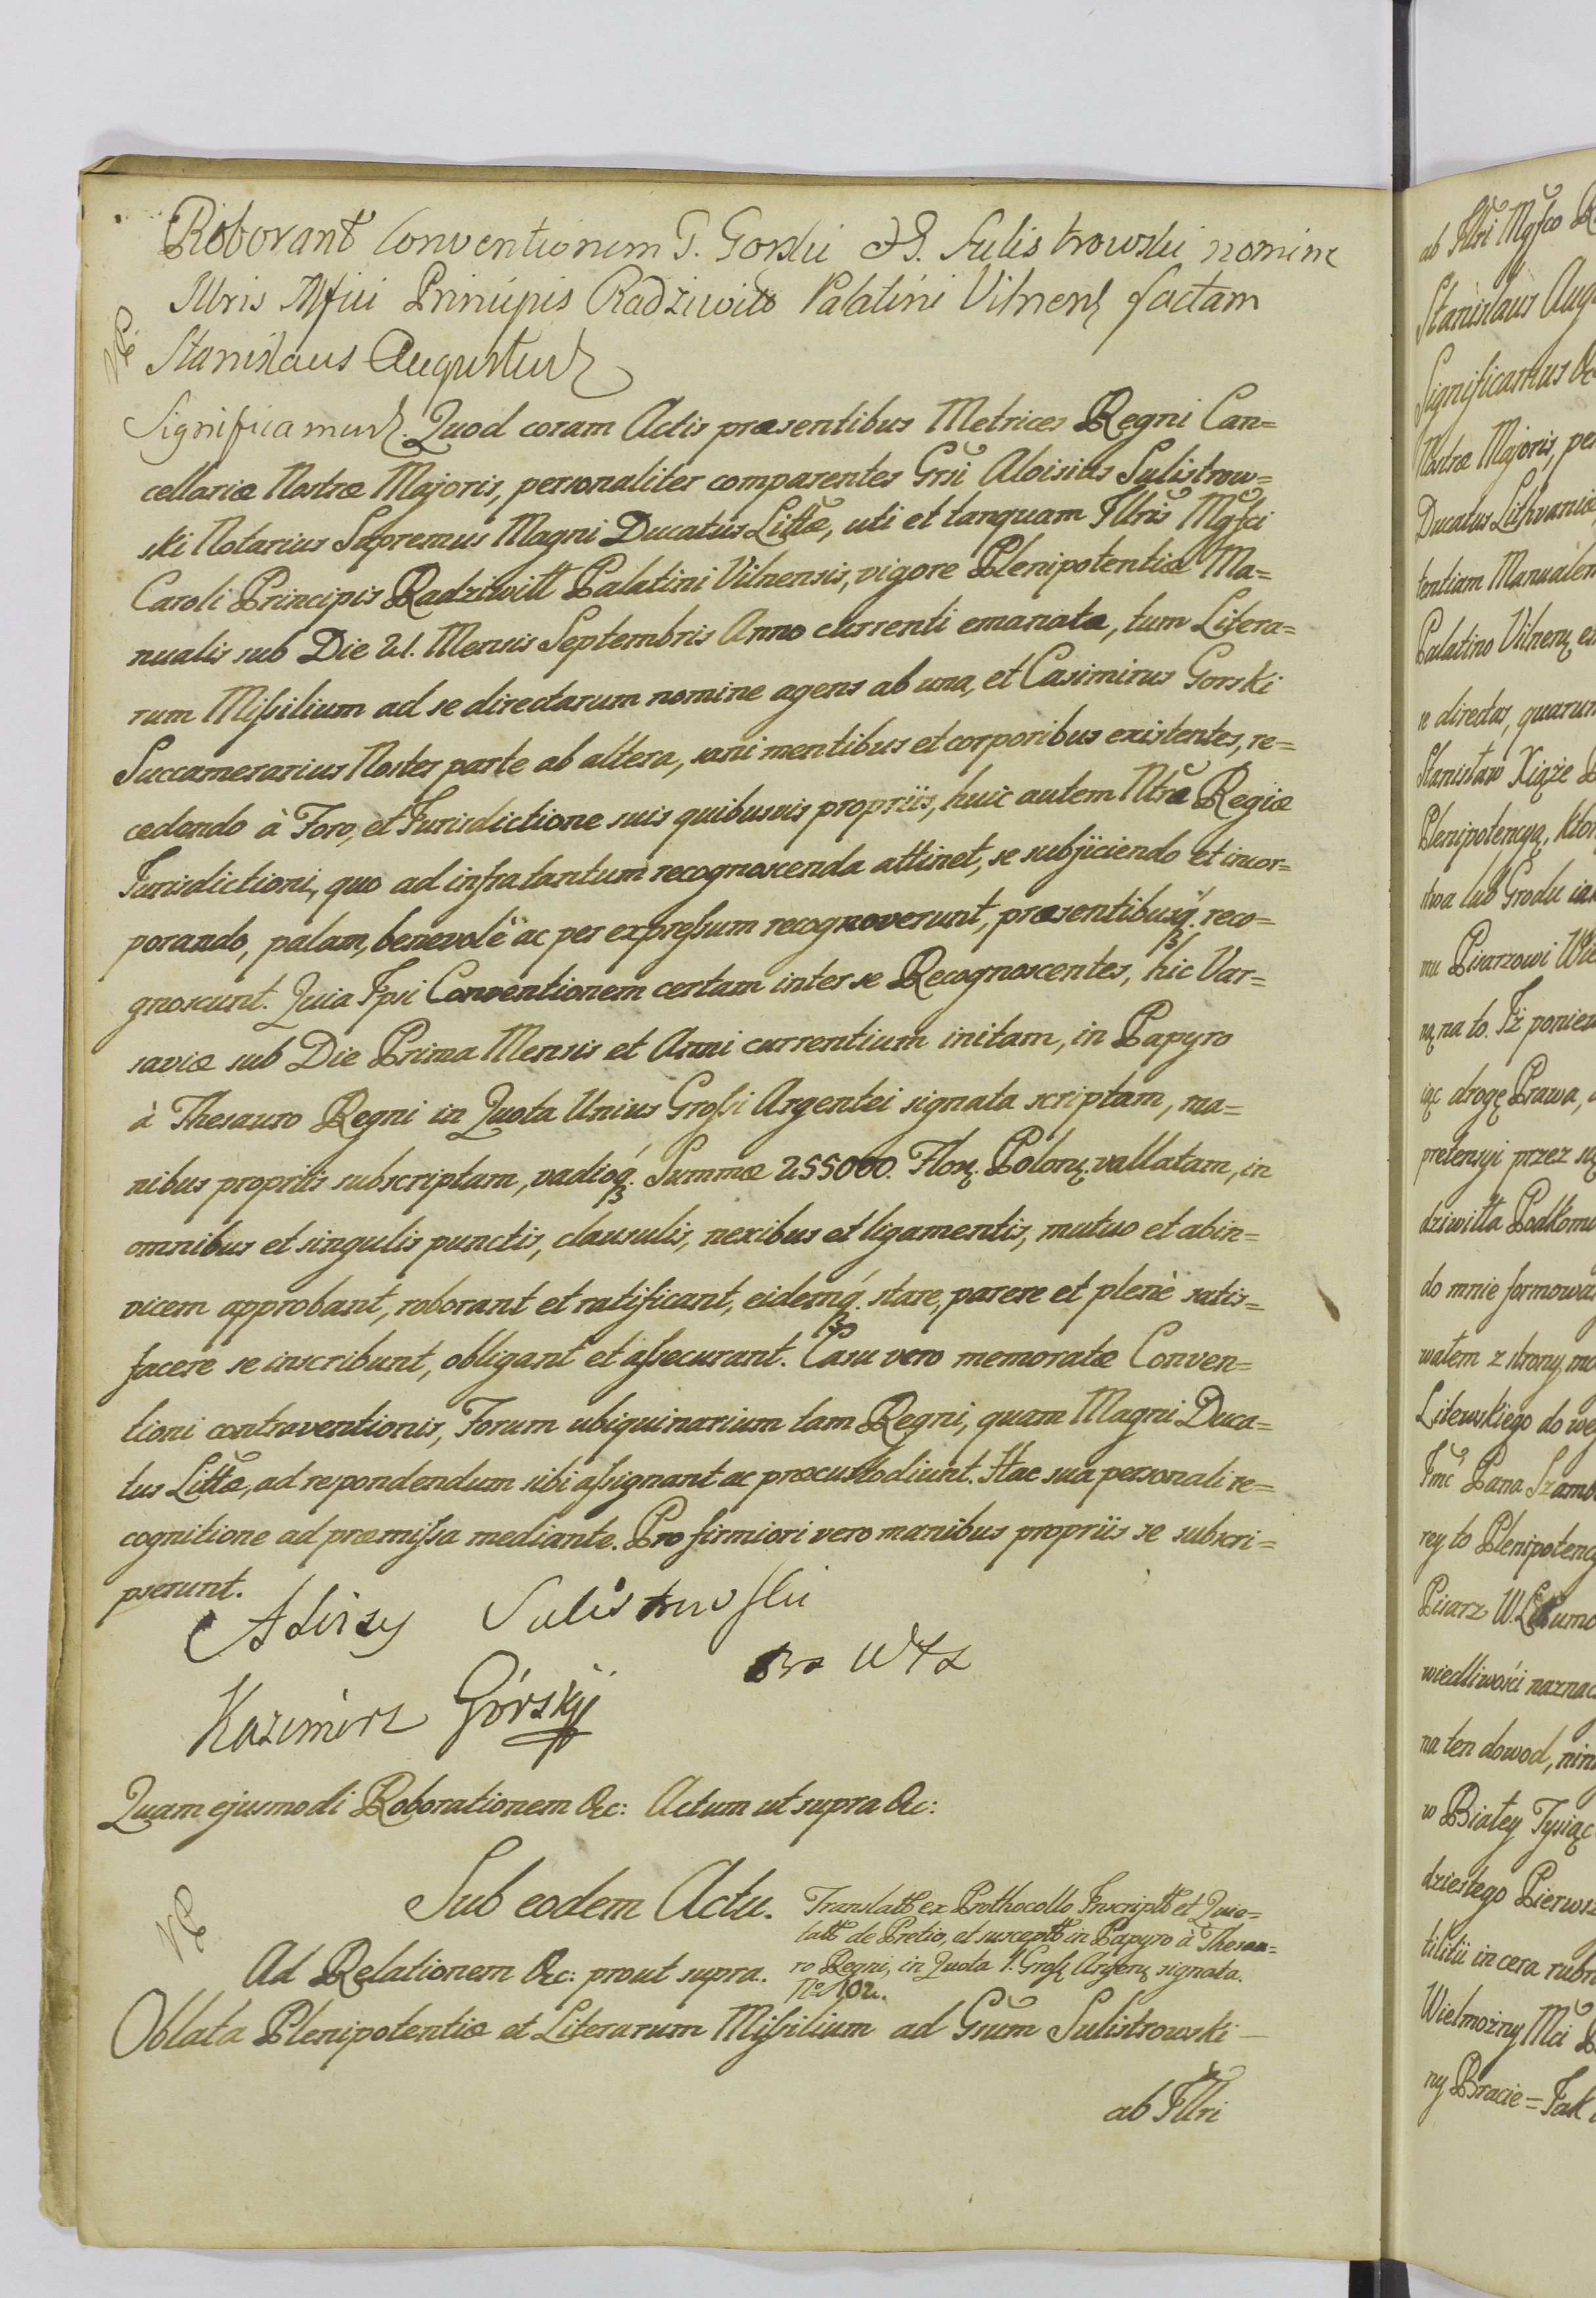 Roborant Conventionem G. Gorski & G. Sulistrowski nomine
Illris Mfici Principis Radziwiłł Palatini Vilnens factam
Stanislaus Augustus
Significamus. Quod coram Actis præsentibus Metrices Regni Can=
cellariæ Nostræ Majoris, personaliter comparentes Grsi Aloisius Sulistrow=
ski Notarius Supremus Magni Ducatus Littæ, uti et tanquam Illris Mgfci
Caroli Principis Radziwiłł Palatini Vilnensis, vigore Plenipotentiæ Ma=
nualis sub Die 21. Mensis Septembris Anno currenti emanatæ, tum Litera=
rum Missilium ad se directarum nomine agens ab una, et Casimirus Gorski
Succamerarius Noster parte ab altera, sani mentibus et corporibus existentes, re=
cedendo à Foro, et Jurisdictione suis quibusvis propriis, huic autem Ntræ Regiæ
Jurisdictioni, quo ad infra tantum recognoscenda attinet, se subjiciendo et incor=
porando, palam, benevolè ac per expressum recognoverunt, præsentibusq. reco=
gnoscunt. Quia Ipsi Conventionem certam inter se Recognoscentes, hic Var=
saviæ sub Die Prima Mensis et Anni currentium initam, in Papyro
à Thesauro Regni in Quota Unius Grossi Argentei signata scriptam, ma=
nibus propriis subscriptam, vadioq. Summæ 255000. Flor. Polon. vallatam, in
omnibus et singulis punctis, clausulis, nexibus et ligamentis, mutuo et abin=
vicem approbant, roborant et ratificant, eidemq. stare, parere et plenè satis=
facere se inscribunt, obligant et assecurant. Casu vero memoratæ Conven=
tioni contraventionis, Forum ubiquinarium tam Regni, quam Magni Duca=
tus Littæ, ad respondendum sibi assignant ac præcustodiunt. Hac sua personali re=
cognitione ad præmissa mediante. Pro firmiori vero manibus propriis se subscri=
pserunt.
Aloizy Sulistrowski
Kazimirz Górskÿ
Quam ejusmodi Roborationem &c: Actum ut supra &c:
Sub eodem Actu.
Translatt ex Prothocollo Inscriptt et Quie=
tatt de Pretio, et susceptt in Papyro à Thesau=
ro Regni, in Quota 1. Gross Argen signata.
No 102.
Ad Relationem &c: prout supra.
Oblata Plenipotentiæ et Literarum Missilium ad Gsum Sulistrowski
ab Illri
ab Illri Mgfco
Stanislaus Aug
Significamus
Nostræ Majoris, per
Ducatus Lithvaniæ
tentiam Manualem
Palatino Vilnens
se directas, quarum
Stanisław Xiąże
Plenipotencyą, ktor
stwa lub Grodu iak
mu Pisarzowi
ną na to. Iż poniew
iąc drogę Prawa,
pretensyi przez
dziwiłła Podkomo
do mnie formowa
wałem z strony mo
Litewskiego do
Imc Pana Szamb
rey to Plenipotency
Pisarz W. L
wiedliwości naznac
na ten dowod, nin
w Białey Tysiąc
dziestego Pierwsz
tilitii in cera rubr
Wielmożny Mci
ny Bracie = Jak